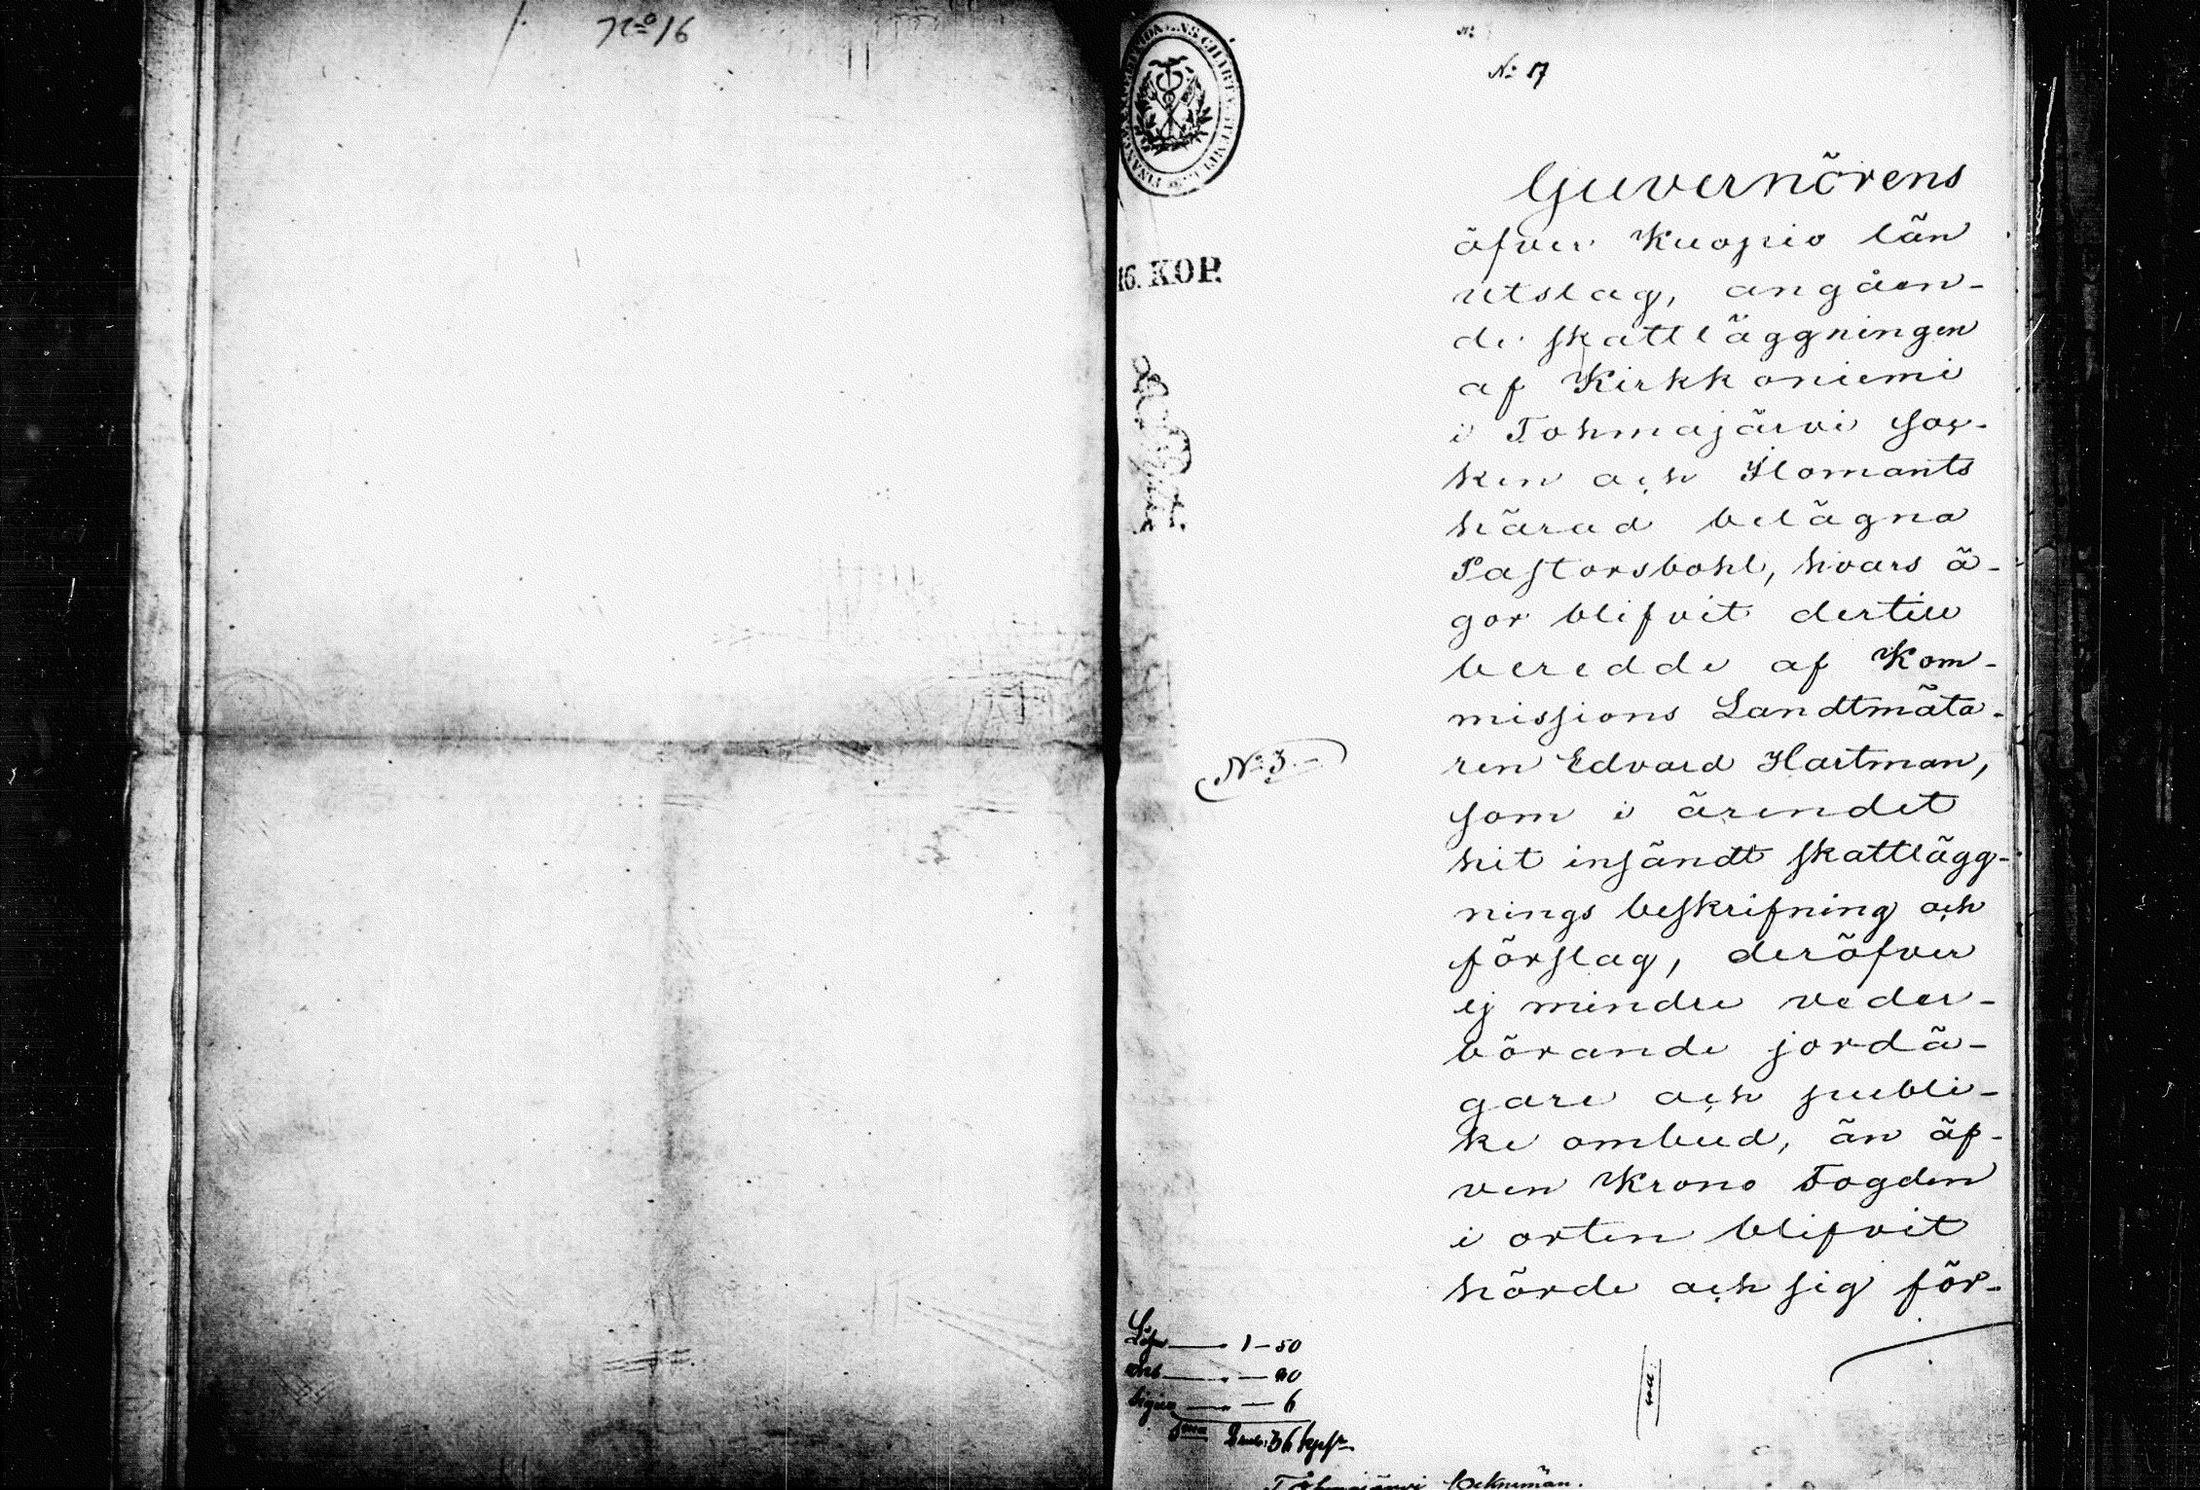 No 16
No 17
16. KOP.
Guvernörens
öfver Kuopio län
utslag, angåen-
de skattläggningen
af Kirkkoniemi
i Tohmajärvi soc-
ken och Ilomants
härad belägna
Pastorsbohl, hvars ä-
gor blifvit dertill
beredde af Kom-
missions Landtmäta-
ren Edvard Hartman,
som i ärendet
hit insändt skattlägg-
nings beskrifning och
förslag, deröfver
ej mindre veder-
börande jordä-
gare och publi-
ke ombud, än äf-
ven Krono Fogden
i orten blifvit
hörde och sig för-
No 3.
Lösen 1-50
90
6